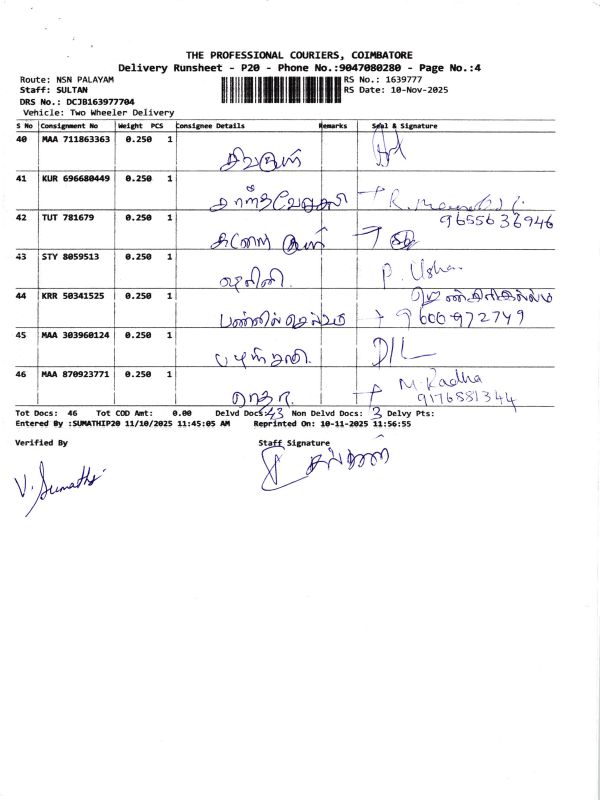 THE PROFESSIONAL COURIERS, COIMBATORE
Delivery Runsheet - P20 - Phone No.:9047080280 - Page No.:4
Route: NSN PALAYAM RS No.: 1639777
Staff: SULTAN RS Date: 10-Nov-2025
DRS No.: DCJB163977704
Vehicle: Two Wheeler Delivery
S No Consignment No Weight PCS Consignee Details Remarks Seal & Signature
40 MAA 711863363 0.250 1
41 KUR 696680449 0.250 1
R.
42 TUT 781679 0.250 1 9655636946
43 STY 8059513 0.250 1
P. Usha
44 KRR 50341525 0.250 1
பன்னீர்செல்வம்
45 MAA 303960124 0.250 1
பழனிசாமி D/L
46 MAA 870923771 0.250 1
ராதா M. Radha
9176581344
Tot Docs: 46 Tot COD Amt: 0.00 Delvd Docs: 43 Non Delvd Docs: 3 Delvy Pts:
Entered By :SUMATHIP20 11/10/2025 11:45:05 AM Reprinted On: 10-11-2025 11:56:55
Verified By Staff Signature
V. Sumathi